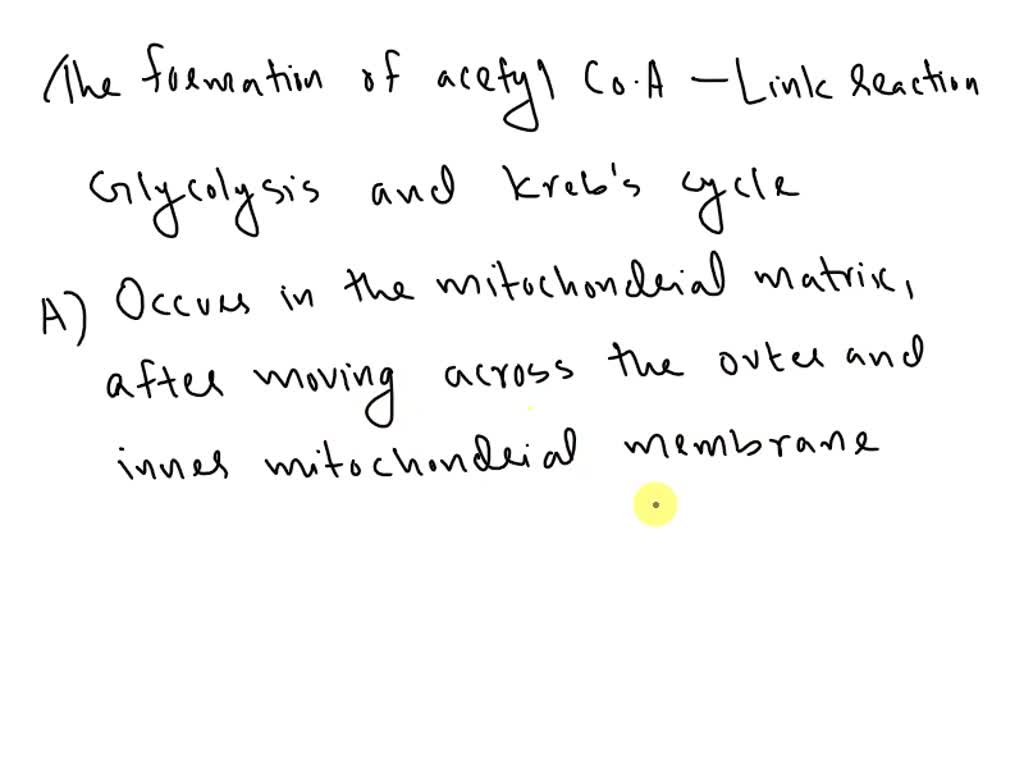 The formation of acetyl Co.A – Link Reaction
Glycolysis and Kreb's cycle
A) Occurs in the mitochondrial matrix,
after moving across the outer and
inner mitochondrial membrane